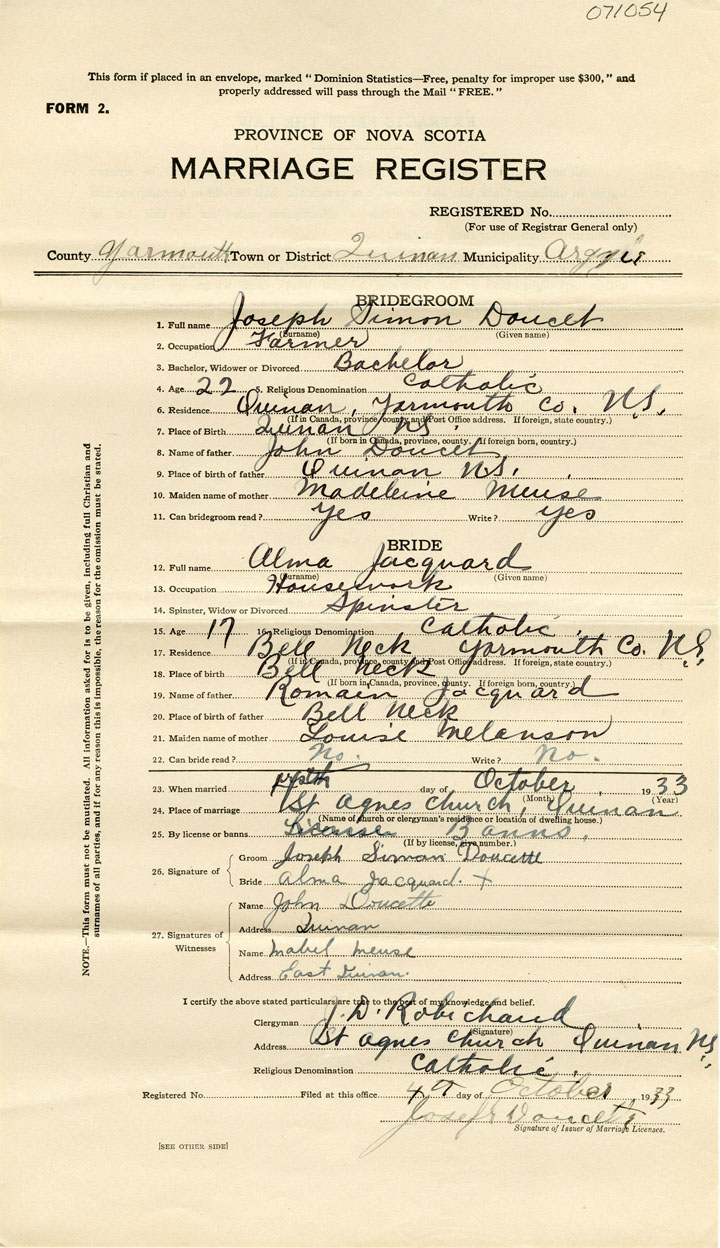 071054
This form if placed in an envelope, marked “Dominion Statistics—Free, penalty for improper use $300,” and
properly addressed will pass through the Mail “FREE.”
FORM 2.
PROVINCE OF NOVA SCOTIA
MARRIAGE REGISTER
REGISTERED No.
(For use of Registrar General only)
County Yarmouth Town or District Quinan Municipality Argyle
BRIDEGROOM
1. Full name Joseph Simon Doucet
(Surname) (Given name)
2. Occupation Farmer
3. Bachelor, Widower or Divorced Bachelor
4. Age 22 5. Religious Denomination Catholic
6. Residence Quinan, Yarmouth Co. N.S.
(If in Canada, province, county and Post Office address. If foreign, state country.)
7. Place of Birth Quinan NS.
(If born in Canada, province, county. If foreign born, country.)
8. Name of father John Doucet
9. Place of birth of father Quinan N.S.
10. Maiden name of mother Madeleine Meuse
11. Can bridegroom read? Yes Write? Yes
BRIDE
12. Full name Alma Jacquard
(Surname) (Given name)
13. Occupation Housework
14. Spinster, Widow or Divorced Spinster
15. Age 17 16. Religious Denomination Catholic.
17. Residence Bell Neck Yarmouth Co. N.S.
(If in Canada, province, county and Post Office address. If foreign, state country.)
18. Place of birth Bell Neck
(If born in Canada, province, county. If foreign born, country.)
19. Name of father Romain Jacquard
20. Place of birth of father Bell Neck
21. Maiden name of mother Louise Melanson
22. Can bride read? No. Write? No.
23. When married day of October 1933
(Month) (Year)
24. Place of marriage St Agnes Church, Quinan
(Name of church or clergyman's residence or location of dwelling house.)
25. By license or banns License Banns.
(If by license, give number.)
26. Signature of
Groom Joseph Simon Doucette
Bride Alma Jacquard. +
27. Signatures of Witnesses
Name John Doucette
Address Quinan
Name Mabel Meuse
Address East Quinan.
I certify the above stated particulars are true to the best of my knowledge and belief.
Clergyman J. D. Robichaud
(Signature)
Address St Agnes Church Quinan N.S.
Religious Denomination Catholic.
Registered No. Filed at this office day of October 1933
Doucette
Signature of Issuer of Marriage Licenses.
[SEE OTHER SIDE]
NOTE.—This form must not be mutilated. All information asked for is to be given, including full Christian and
surnames of all parties, and if for any reason this is impossible, the reason for the omission must be stated.